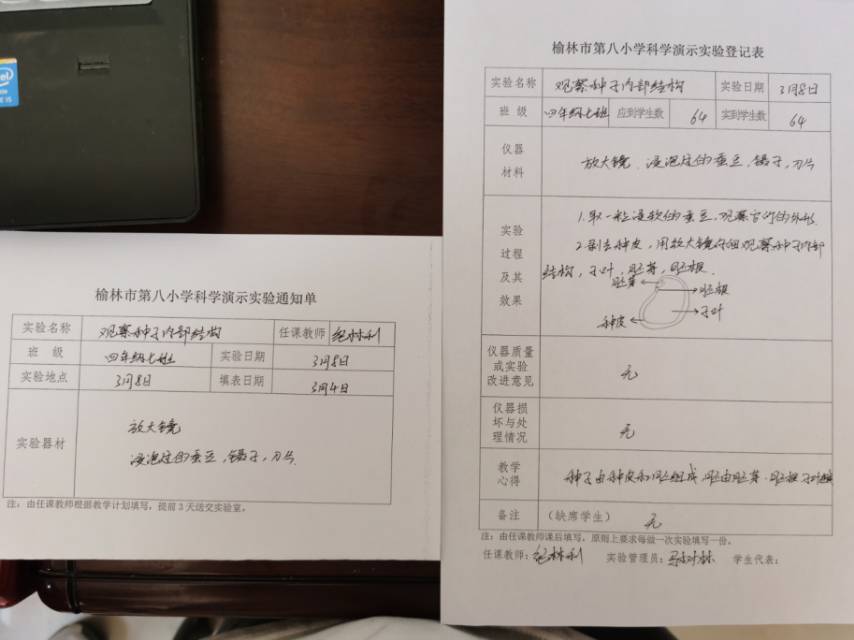 榆林市第八小学科学演示实验通知单
实验名称 观察种子内部结构 任课教师 纪林利
班 级 四年级七班 实验日期 3月8日
实验地点 3月8日 填表日期 3月4日
实验器材
放大镜
浸泡过的蚕豆,镊子,刀片
注:由任课教师根据教学计划填写,提前3天送交实验室。
榆林市第八小学科学演示实验登记表
实验名称 观察种子内部结构 实验日期 3月8日
班 级 四年级七班 应到学生数 64 实到学生数 64
仪器
材料
放大镜、浸泡过的蚕豆,镊子,刀片
实验
过程
及其
效果
1.取一粒浸软的蚕豆,观察它的外形
2.剥去种皮,用放大镜仔细观察种子内部
结构,子叶,胚芽,胚根.
胚芽
胚根
子叶
种皮
仪器质量
或实验
改进意见
无
仪器损
坏与处
理情况
无
教学
心得
种子由种皮和胚组成,胚由胚芽、胚根 子叶
备注 (缺席学生) 无
注:由任课教师课后填写,原则上要求每做一次实验填写一份。
任课教师:纪林利 实验管理员: 学生代表: